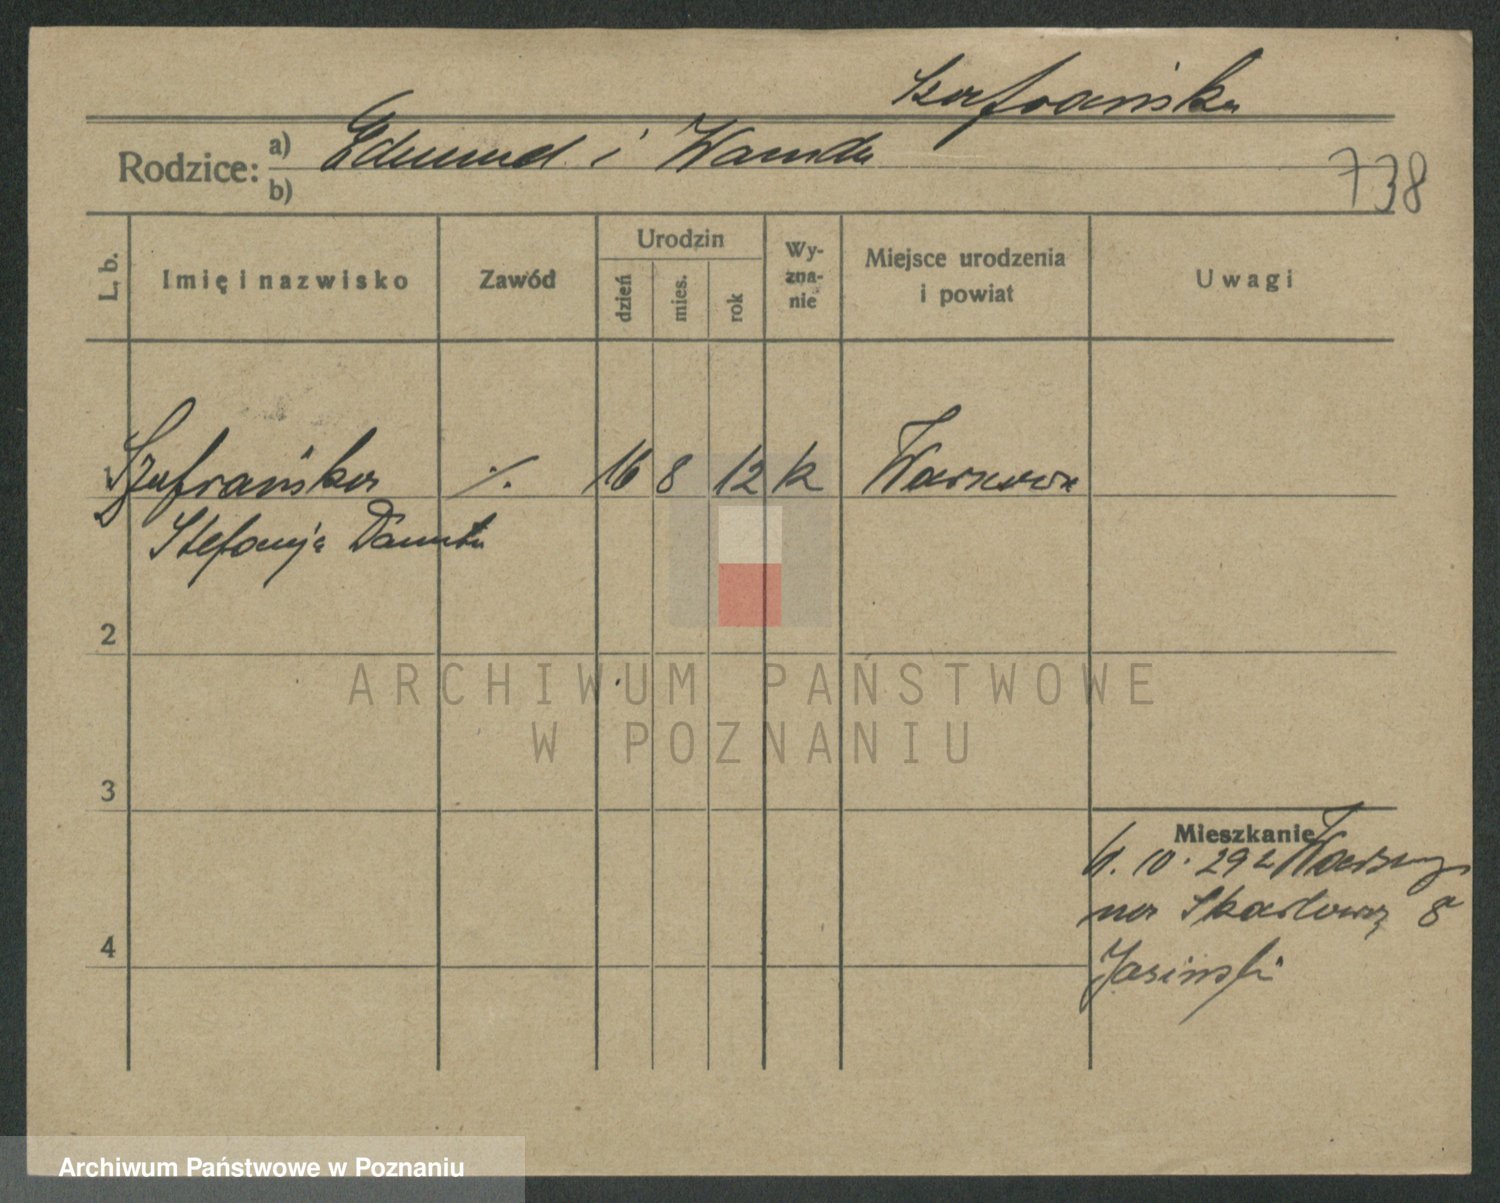 Szafrańska
Rodzice: a) Edmund i Wanda
b)
738
L. b. Imię i nazwisko Zawód Urodzin dzień mies. rok Wy-zna-nie Miejsce urodzenia i powiat Uwagi
1 Szafrańska ./. 16 8 12 k Warszawa
Stefanja Danuta
2
3
4
Mieszkanie
10. 29 z Warszawy
na Skarbową 8
Jasiński
ARCHIWUM PAŃSTWOWE
W POZNANIU
Archiwum Państwowe w Poznaniu